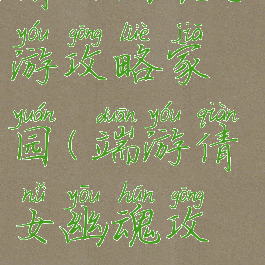 yóu gōng lüè jiā
游攻略家
yuán duān yóu qiàn
园(端游倩
nǚ yōu hún gōng
女幽魂攻